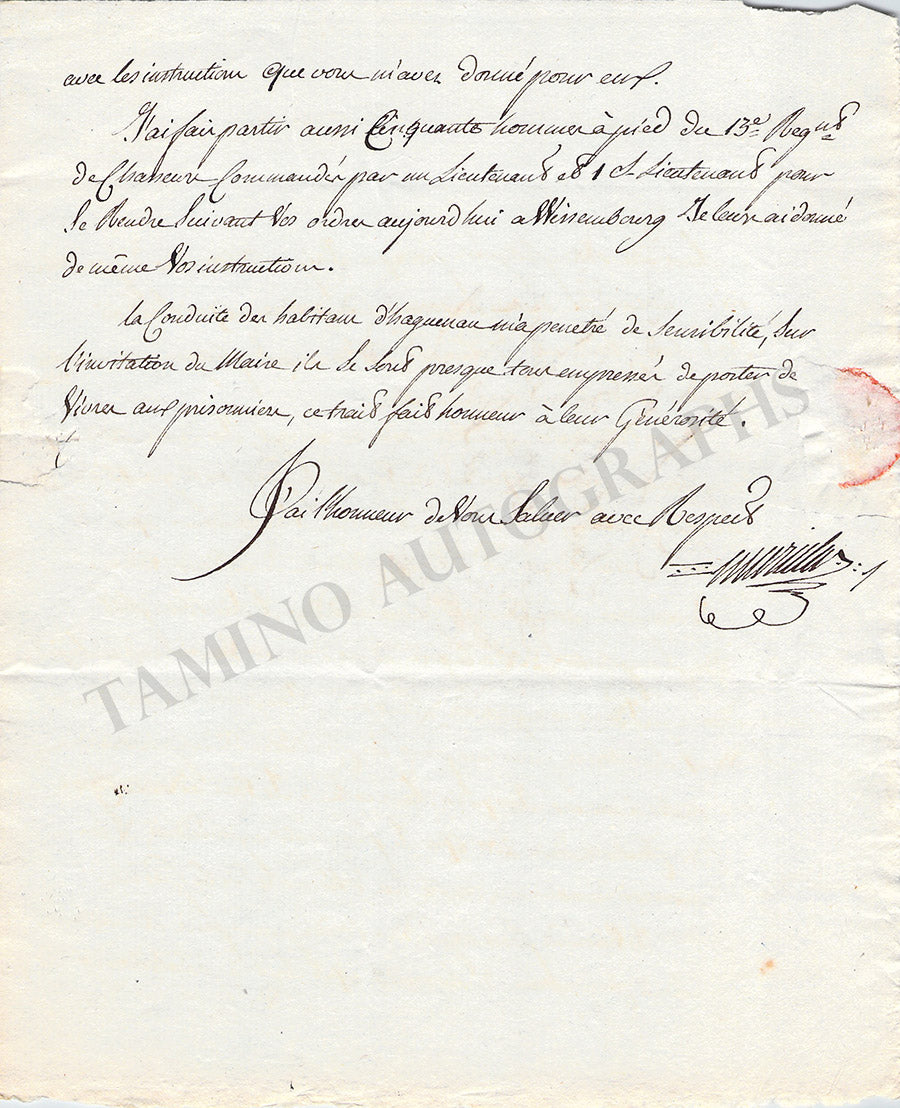 avec les instruction que vous m'avez donné pour eux.
J'ai fait partir aussi Cinquante hommes à pied du 13e Regnt
de Chasseurs Commandés par un Lieutenant et 1 S Lieutenant pour
Se Rendre Suivant Vos ordres aujourd'hui a Wissembourg Je leurs ai donné
de même Vos instructions.
la Conduite des habitans d'haguenau m'a penetré de Sensibilité, Sur
l'invitation du Maire ils Se Sont presque tous empressés de porter de
Vivres aux prisonniers, ce trait fait honneur à leur Générosité.
J'ai l'honneur de Vous Saluer avec Respect
TAMINO AUTOGRAPHS